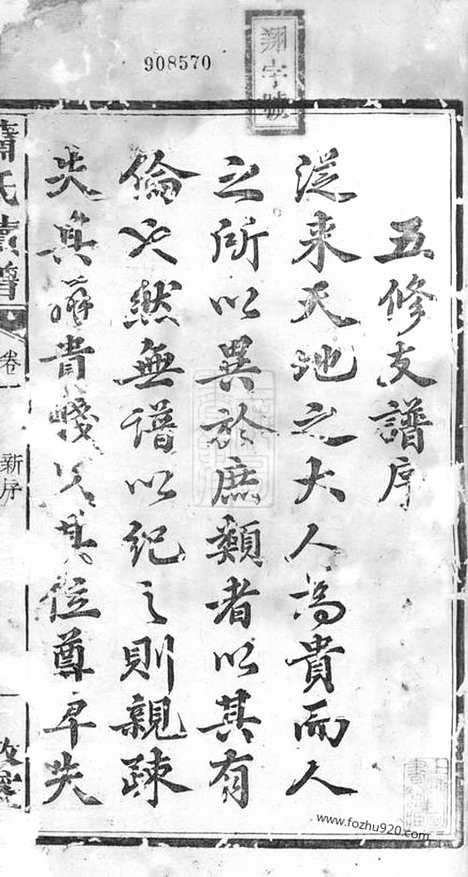 908570
翔字號
五修支譜序
從来天地之大人為貴而人
之所以異於庶類者以其有
倫也然無谱以紀之則親疎
失其貴賤失其位尊卑失
蕭氏譜
卷一
新序
www.fozhu920.com